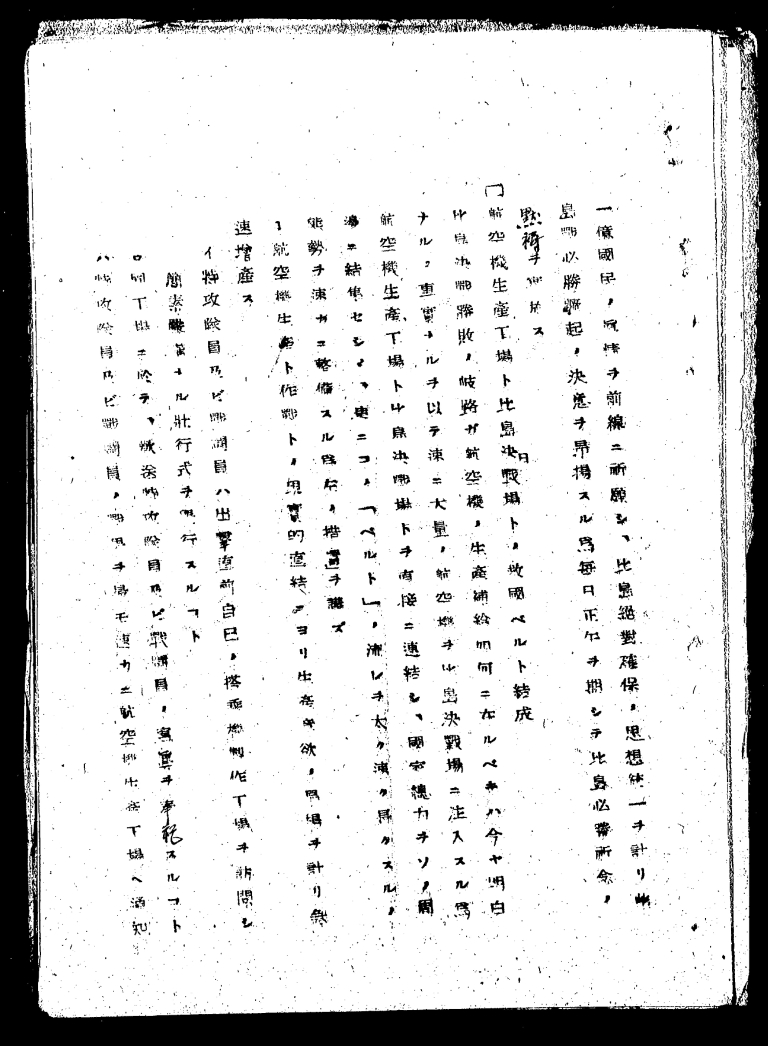 一億國民ノ誠情ヲ前線ニ祈願シ、比島絕對確保ノ思想統一ヲ計リ比
島戰必勝蹶起ノ決意ヲ昂揚スル爲每日正午ヲ期シテ比島必勝祈念ノ
默禱ヲ實施ス
航空機生產工場ト比島決戰場トノ救國ベルト結成
比島決戰勝敗ノ岐路ガ航空機ノ生產補給如何ニ在ルベキハ今ヤ明白
ナル事實ナルヲ以テ速ニ大量ノ航空機ヲ比島決戰場ニ注入スル爲
航空機生產工場ト比島決戰場トヲ直接ニ連結シ、國家總力ヲソノ周
邊ニ結集セシメ、更ニコノ「ベルト」ノ流レヲ太ク速ク爲
態勢ヲ速カニ整備スル爲左ノ措置ヲ講ズ
1 航空機生產ト作戰トノ現實的直結ニヨリ生產意欲ノ昂揚ヲ計リ急
速增產ス
イ 特攻隊員及ビ戰鬪員ハ出擊直前自己ノ搭乘機製作工場ヲ訪問シ
簡素嚴肅ナル壯行式ヲ擧行スルコト
ロ 同工場ニ於テハ、特攻隊員及ビ戰鬪員ノ寫眞ヲ奉祀スルコト
ハ 特攻隊員及ビ戰鬪員ノ戰果ヲ最モ速カニ航空機生產工場ヘ通知